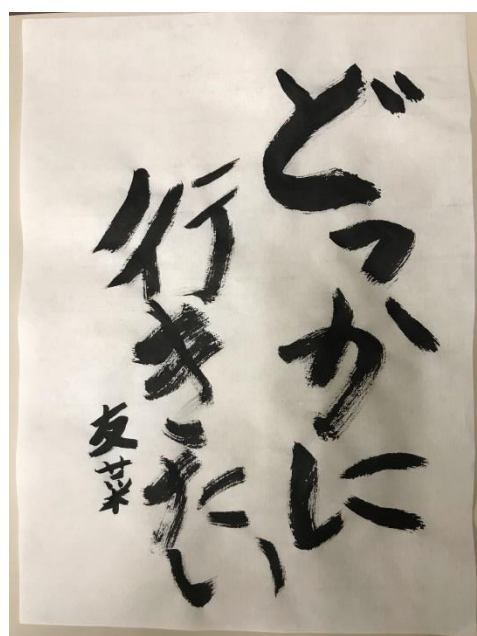 どっかに
行きたい
友菜